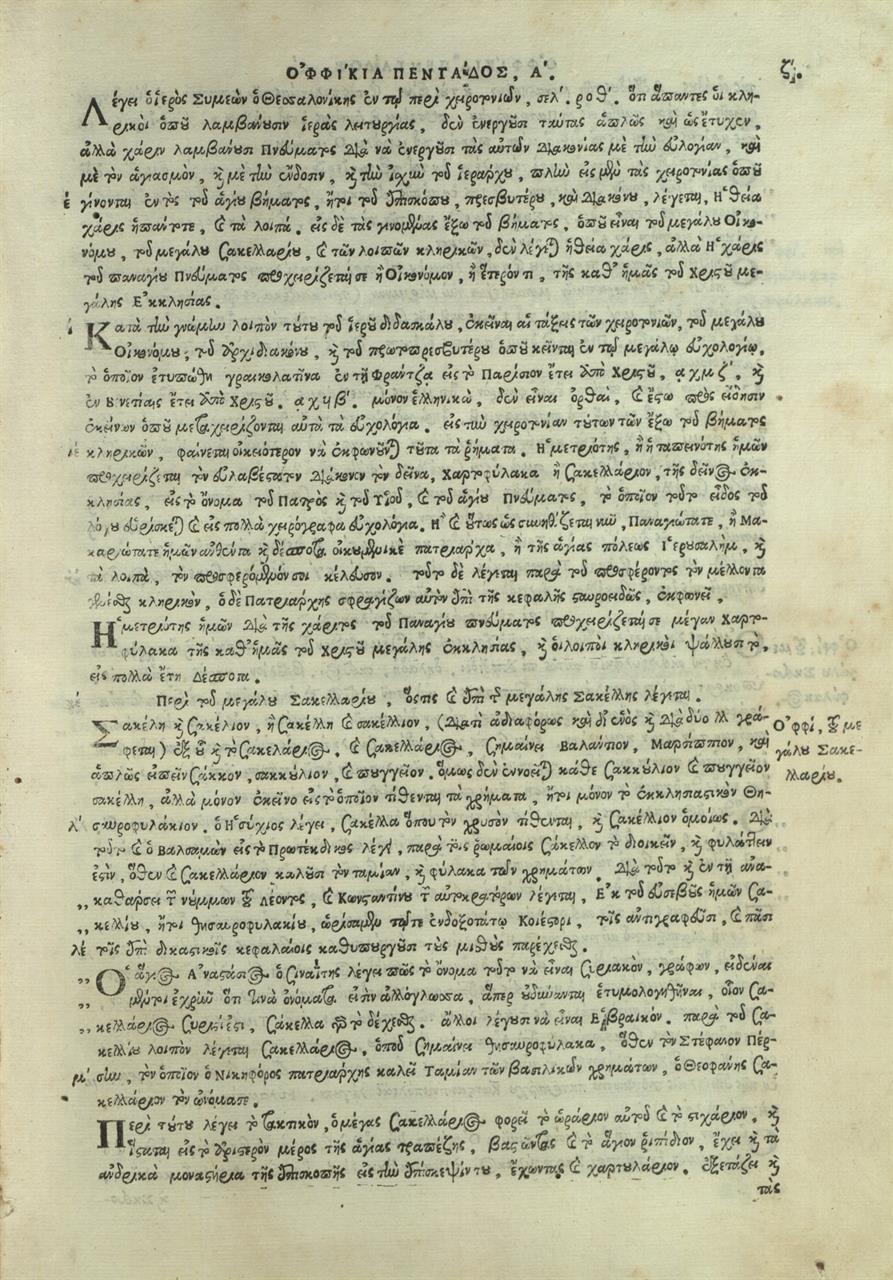 ΟΦΦΙΚΙΑ ΠΕΝΤΑΔΟΣ, Α΄. ζ΄.
Λέγει ὁ ἱερὸς Συμεὼν ὁ Θεσσαλονίκης ἐν τῷ περὶ χειροτονιῶν, σελ΄. ροθ΄. ὅτι ἅπαντες οἱ κλη-
ρικοὶ ὁποῦ λαμβάνουσιν ἱερὰς λειτουργίας, δὲν ἐνεργοῦσι ταύτας ἁπλῶς καὶ ὡς ἔτυχεν,
ἀλλὰ χάριν λαμβάνουσι Πνεύματος διὰ νὰ ἐνεργοῦσι τὰς αὐτῶν Διακονίας μὲ τὴν εὐλογίαν, καὶ
μὲ τὸν ἁγιασμὸν, καὶ μὲ τὴν ἔνδοσιν, καὶ τὴν ἰσχὺν τοῦ ἱεράρχου, πλὴν εἰς μὲν τὰς χειροτονίας ὁποῦ
ε γίνονται ἐντὸς τοῦ ἁγίου βήματος, ἤτοι τοῦ ἐπισκόπου, πρεσβυτέρου, καὶ Διακόνου, λέγεται, Ἡ θεία
χάρις ἡ πάντοτε, καὶ τὰ λοιπά. εἰς δὲ τὰς γινομένας ἔξω τοῦ βήματος, ὁποῦ εἶναι τοῦ μεγάλου Οἰκο-
νόμου, τοῦ μεγάλου Σακελλαρίου, καὶ τῶν λοιπῶν κληρικῶν, δὲν λέγεται ἡ θεία χάρις, ἀλλὰ Ἡ χάρις
τοῦ παναγίου Πνεύματος προχειρίζεταί σε ἢ Οἰκονόμον, ἢ ἕτερόν τι, τῆς καθ᾿ ἡμᾶς τοῦ Χριστοῦ με-
γάλης Ἐκκλησίας.
ι Κατὰ τὴν γνώμην λοιπὸν τούτου τοῦ ἱεροῦ διδασκάλου, ἐκεῖναι αἱ τάξεις τῶν χειροτονιῶν, τοῦ μεγάλου
Οἰκονόμου, τοῦ Ἀρχιδιακόνου, καὶ τοῦ πρωτοπρεσβυτέρου ὁποῦ κεῖνται ἐν τῷ μεγάλῳ εὐχολογίῳ,
τὸ ὁποῖον ἐτυπώθη γραικολατῖνα ἐν τῇ Φραντζα εἰς τὸ Παρίσιον ἔτει ἀπὸ Χριστοῦ, αχμζ΄, καὶ
ἐν Ουνετίαις ἔτει ἀπὸ Χριστοῦ. αχϟβ΄. μόνον ἑλληνικὰ, δὲν εἶναι ὀρθαὶ, καὶ ἔστω πρὸς εἴδησιν
ἐκείνων ὁποῦ μεταχειρίζονται αὐτὰ τὰ εὐχολόγια. εἰς τὴν χειροτονίαν τούτων τῶν ἔξω τοῦ βήματος
ιε κληρικῶν, φαίνεται οἰκειότερον νὰ ἐκφωνοῦνται τοῦτα τὰ ῥήματα. Ἡ μετριότης, ἢ ἡ ταπεινότης ἡμῶν
προχειρίζεται τὸν εὐλαβέστατον Διάκονον τὸν δεῖνα, Χαρτοφύλακα ἢ Σακελλάριον, τῆς δεῖνος ἐκ-
κλησίας, εἰς τὸ ὄνομα τοῦ Πατρὸς καὶ τοῦ Υἱοῦ, καὶ τοῦ ἁγίου Πνεύματος, τὸ ὁποῖον τοῦτο εἶδος τοῦ
λόγου εὑρίσκεται καὶ εἰς πολλὰ χειρόγραφα εὐχολόγια. Ἢ καὶ οὕτως ὡς συνηθίζεται νῦν, Παναγιώτατε, ἢ Μα-
καριώτατε ἡμῶν αὐθέντα καὶ δέσποτα οἰκουμενικὲ πατριάρχα, ἢ τῆς ἁγίας πόλεως Ἱερουσαλὴμ, καὶ
τὰ λοιπὰ, τὸν προσφερόμενόν σοι κέλευσον. τοῦτο δὲ λέγεται παρὰ τοῦ προσφέροντος τὸν μέλλοντα
γενέσθαι κληρικὸν, ὁ δὲ Πατριάρχης σφραγίζων αὐτὸν ἐπὶ τῆς κεφαλῆς σταυροειδῶς, ἐκφωνεῖ,
Ἡ μετριότης ἡμῶν διὰ τῆς χάριτος τοῦ Παναγίου πνεύματος προχειρίζεταί σε μέγαν Χαρτο-
φύλακα τῆς καθ᾿ ἡμᾶς τοῦ Χριστοῦ μεγάλης ἐκκλησίας, καὶ οἱ λοιποὶ κληρικοὶ ψάλλουσι τὸ,
εἰς πολλὰ ἔτη Δέσποτα.
Περὶ τοῦ μεγάλου Σακελλαρίου, ὅστις καὶ ἐπὶ τῆς μεγάλης Σακέλλης λέγεται.
Σακέλη καὶ Σακέλιον, ἢ Σακέλλη καὶ σακέλλιον, (διατὶ ἀδιαφόρως καὶ δι᾿ ἑνὸς καὶ διὰ δύο λλ γρά-
φεται) ἐξ οὗ καὶ τὸ Σακελάριος, καὶ Σακελλάριος, σημαίνει Βαλάντιον, Μαρσίππιον, καὶ
ἁπλῶς εἰπεῖν Σάκκον, σακκύλιον, καὶ πουγγεῖον. ὅμως δὲν ἐννοεῖται κάθε Σακκύλιον καὶ πουγγεῖον
σακέλλη, ἀλλὰ μόνον ἐκεῖνο εἰς τὸ ὁποῖον τίθενται τὰ χρήματα, ἤτοι μόνον τὸ ἐκκλησιαστικὸν Θη-
λ΄ σαυροφυλάκιον. ὁ Ἡσύχιος λέγει, Σακέλλα ὅπου τὸν χρυσὸν τίθενται, καὶ Σακέλλιον ὁμοίως. Διὰ
τοῦτο καὶ ὁ Βαλσαμὼν εἰς τὸ Πρωτέκδικος λέγει, παρὰ τοῖς ῥωμαίοις Σάκελλον τὸ διοικεῖν, καὶ φυλάττειν
ἐστὶν, ὅθεν καὶ Σακελλάριον καλοῦσι τὸν ταμίαν, καὶ φύλακα τῶν χρημάτων. Διὰ τοῦτο καὶ ἐν τῇ ἀνα-
„ καθάρσει τῶν νόμων τοῦ Λέοντος, καὶ Κωνσταντίνου τῶν αὐτοκρατόρων λέγεται, Ἐκ τοῦ εὐσεβοῦς ἡμῶν Σα-
„ κελλίου, ἤτοι θησαυροφυλακίου, ὡρίσαμεν τῷτε ἐνδοξοτάτῳ Κοιέστορι, τοῖς ἀντιγραφεῦσι, καὶ πᾶσι
λε τοῖς ἐπὶ δικαστικοῖς κεφαλαίοις καθυπουργοῦσι τοὺς μισθοὺς παρέχεσθαι.
„ Ὁ ἅγιος Ἀναστάσιος ὁ Σιναΐτης λέγει πῶς τὸ ὄνομα τοῦτο νὰ εἶναι Συριακὸν, γράφων, εἰδέναι
„ μέντοι ἐχρῆν ὅτι τινὰ ὀνόματα εἰσὶν ἀλλόγλωσσα, ἅπερ οὐ δύνανται ἐτυμολογηθῆναι, οἷον Σα-
„ κελλάριος Συριστὶ ἐστι, Σάκελλα γὰρ τὸ δέχεσθαι. ἄλλοι λέγουσι νὰ εἶναι Ἑβραϊκόν. παρὰ τοῦ Σα-
κελλίου λοιπὸν λέγεται Σακελλάριος, ὁποῦ σημαίνει θησαυροφύλακα, ὅθεν τὸν Στέφανον Πέρ-
μ΄ σην, τὸν ὁποῖον ὁ Νικηφόρος πατριάρχης καλεῖ Ταμίαν τῶν βασιλικῶν χρημάτων, ὁ Θεοφάνης Σα-
κελλάριον τὸν ὠνόμασε.
Περὶ τούτου λέγει τὸ τακτικὸν, ὁ μέγας Σακελλάριος φορεῖ τὸ ὡράριον αὐτοῦ καὶ τὸ στιχάριον, καὶ
ἵσταται εἰς τὸ Ἀριστερὸν μέρος τῆς ἁγίας τραπέζης, βαστῶντας καὶ τὸ ἅγιον ῥιπίδιον, ἔχει καὶ τὰ
ἀνδρικὰ μοναστήρια τῆς ἐπισκοπῆς εἰς τὴν ἐπίσκεψίν του, ἔχωντας καὶ χαρτουλάριον. ἐξετάζει καὶ
τὰς
Ὀφφί, τοῦ με
γάλου Σακε-
λλαρίου.